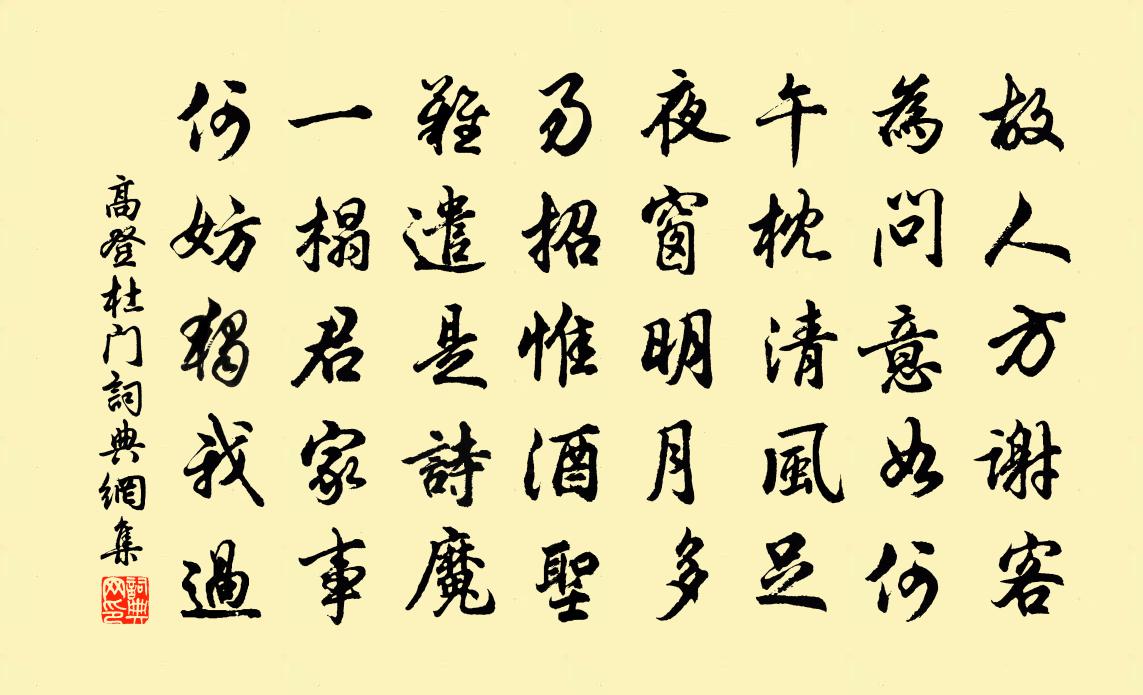 故人方謝客
為問意如何
午枕清風足
夜窗明月多
易招惟酒聖
難遣是詩魔
一榻君家事
何妨獨我過
高登杜门詞典網集
詞典网印